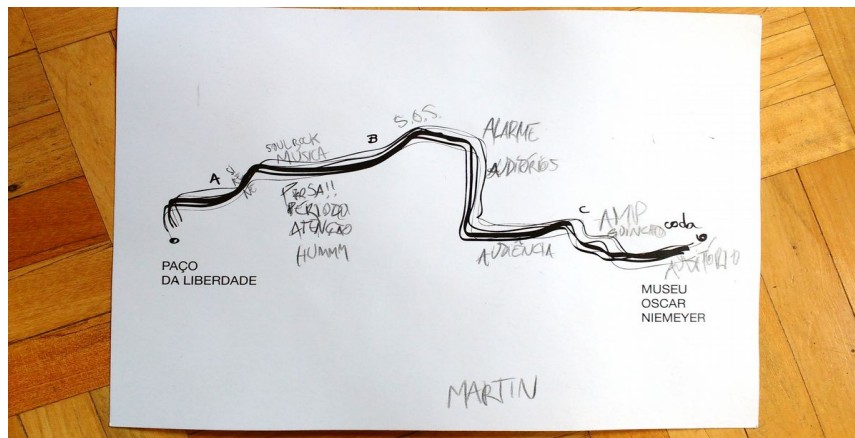 A
SOUL ROCK
MÚSICA
B
S.O.S.
ALARME
AUDITÓRIOS
PRESA!!
PERÍODO
ATENÇÃO
HUMMM
AUDIÊNCIA
C
AMP
GUINCHO
coda
AUDITÓRIO
PAÇO
DA LIBERDADE
MUSEU
OSCAR
NIEMEYER
MARTIN